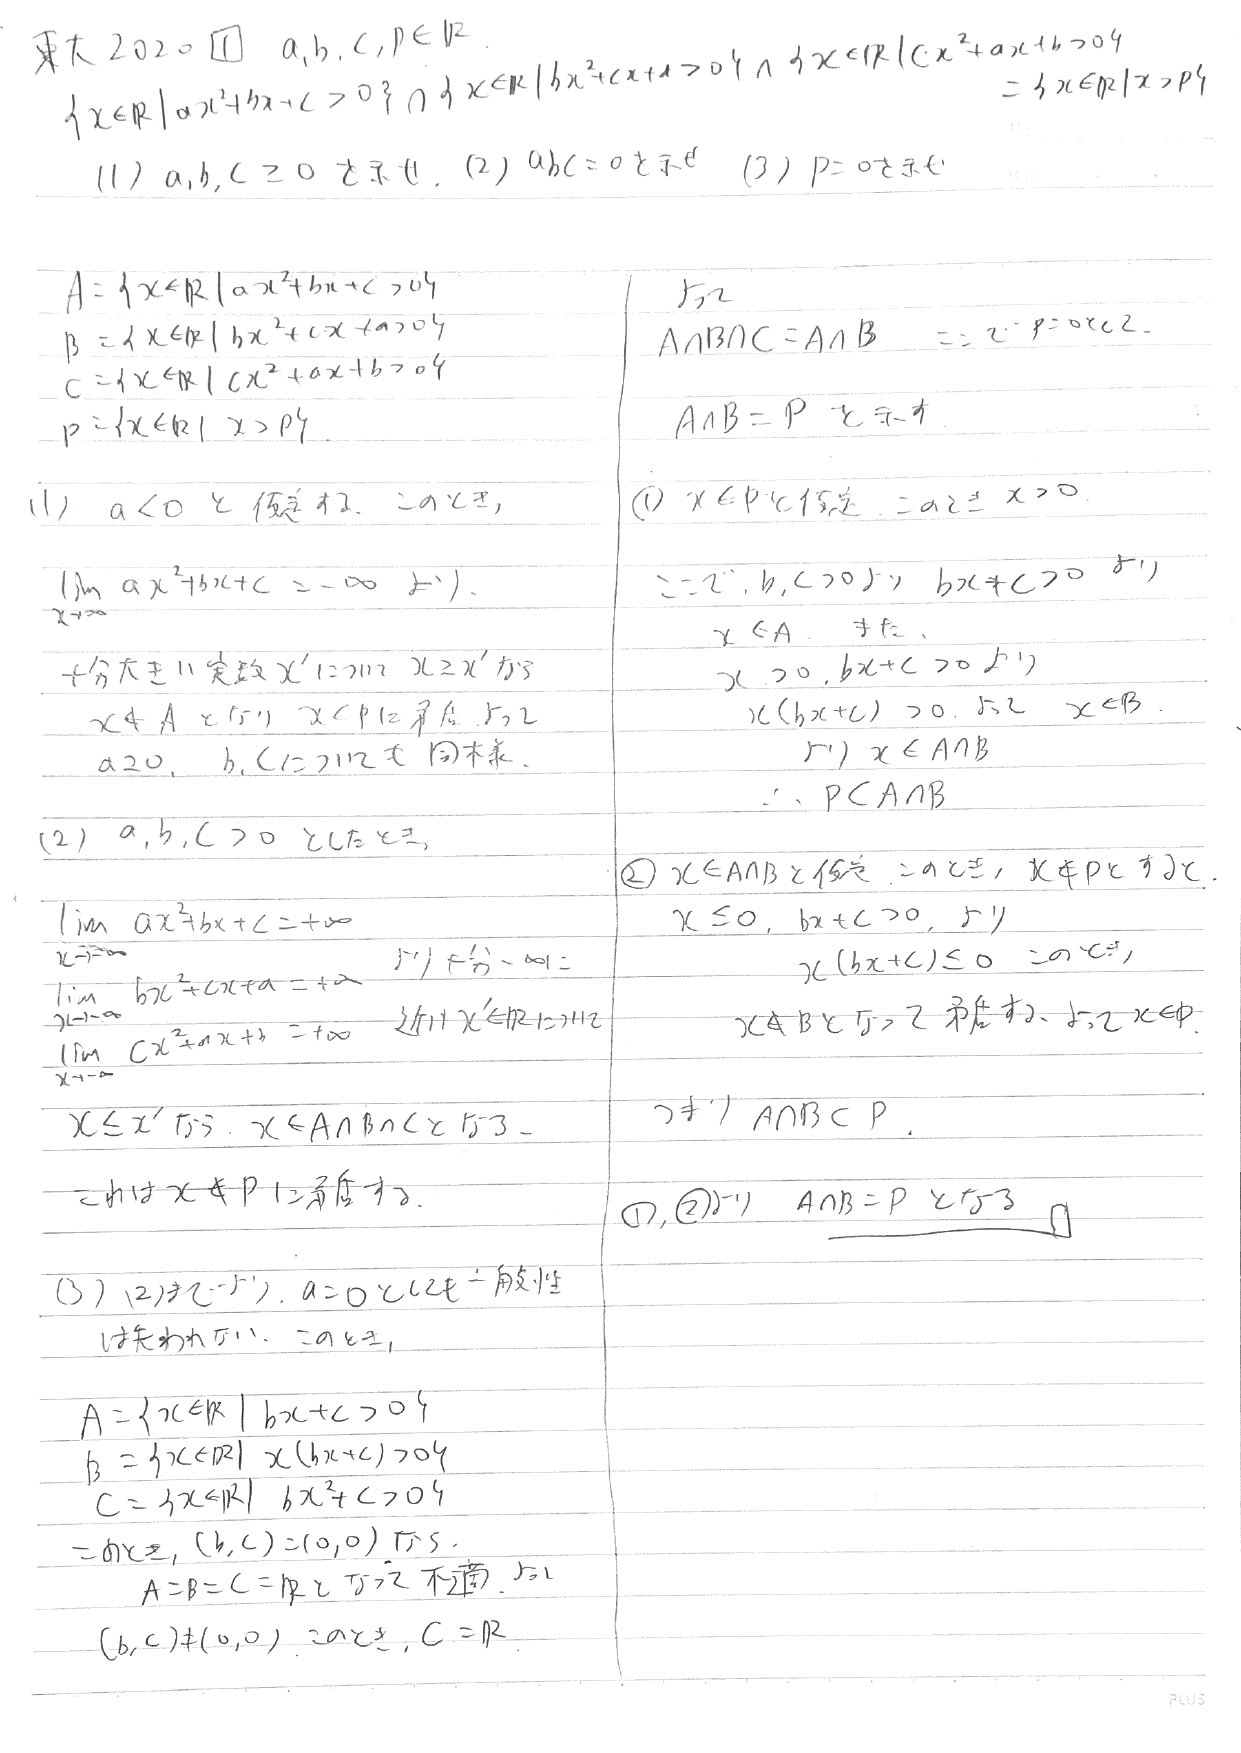 東大2020 1 a,b,c,p∈ℝ
{x∈ℝ|ax²+bx+c>0}∩{x∈ℝ|bx²+cx+a>0}∩{x∈ℝ|cx²+ax+b>0}
={x∈ℝ|x>p}
(1) a,b,c≧0を示せ. (2) abc=0を示せ (3) p=0を示せ
A={x∈ℝ|ax²+bx+c>0}
B={x∈ℝ|bx²+cx+a>0}
C={x∈ℝ|cx²+ax+b>0}
P={x∈ℝ|x>p}
(1) a<0と仮定する. このとき,
lim ax²+bx+c=-∞ より.
x→∞
十分大きい実数x'についてx≧x'なら
x∉Aとなりx∈Pに矛盾 よって
a≧0. b,cについても同様.
(2) a,b,c>0としたとき,
lim ax²+bx+c=+∞
x→-∞
lim bx²+cx+a=+∞ より十分-∞に
x→-∞
lim cx²+ax+b=+∞ 近いx'∈ℝについて
x→-∞
x≦x'なら. x∈A∩B∩Cとなる.
これはx∉Pに矛盾する.
(3) (2)までより. a=0としても一般性
は失われない. このとき,
A={x∈ℝ|bx+c>0}
B={x∈ℝ|x(bx+c)>0}
C={x∈ℝ|bx²+c>0}
このとき, (b,c)=(0,0)なら.
A=B=C=ℝとなって不適. よって
(b,c)≠(0,0) このとき, C=ℝ
よって
A∩B∩C=A∩B ここでp=0として.
A∩B=Pを示す
① x∈Pと仮定. このときx>0.
ここで, b,c>0より bx+c>0 より
x∈A. また,
x>0, bx+c>0より
x(bx+c)>0. よって x∈B.
より x∈A∩B
∴ P⊂A∩B
② x∈A∩Bと仮定. このとき, x∉Pとすると.
x≦0, bx+c>0, より
x(bx+c)≦0 このとき,
x∉Bとなって矛盾する. よってx∈P.
つまり A∩B⊂P.
①,②より A∩B=Pとなる
PLUS